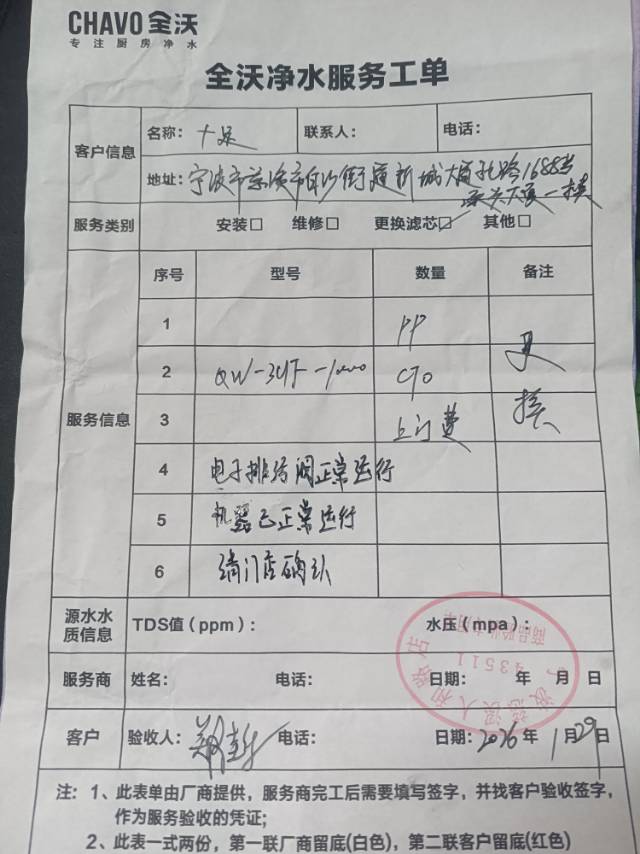 CHAVO 全沃
专注厨房净水
全沃净水服务工单
客户信息 名称： 十足 联系人： 电话：
地址：宁波市 街道新城大道 路1688号
一楼
服务类别 安装□ 维修□ 更换滤芯☑ 其他□
序号 型号 数量 备注
服务信息
1 PP 更
2 QW- -1000 CTO 换
3 上门费
4 电子排污阀正常运行
5 机器已正常运行
6 请门店确认
源水水质信息 TDS值（ppm）： 水压（mpa）：
服务商 姓名： 电话： 日期： 年 月 日
客户 验收人： 电话： 日期：2026年1月29日
43511
商品验收专用章
注：1、此表单由厂商提供，服务商完工后需要填写签字，并找客户验收签字，
作为服务验收的凭证;
2、此表一式两份，第一联厂商留底(白色)，第二联客户留底(红色)